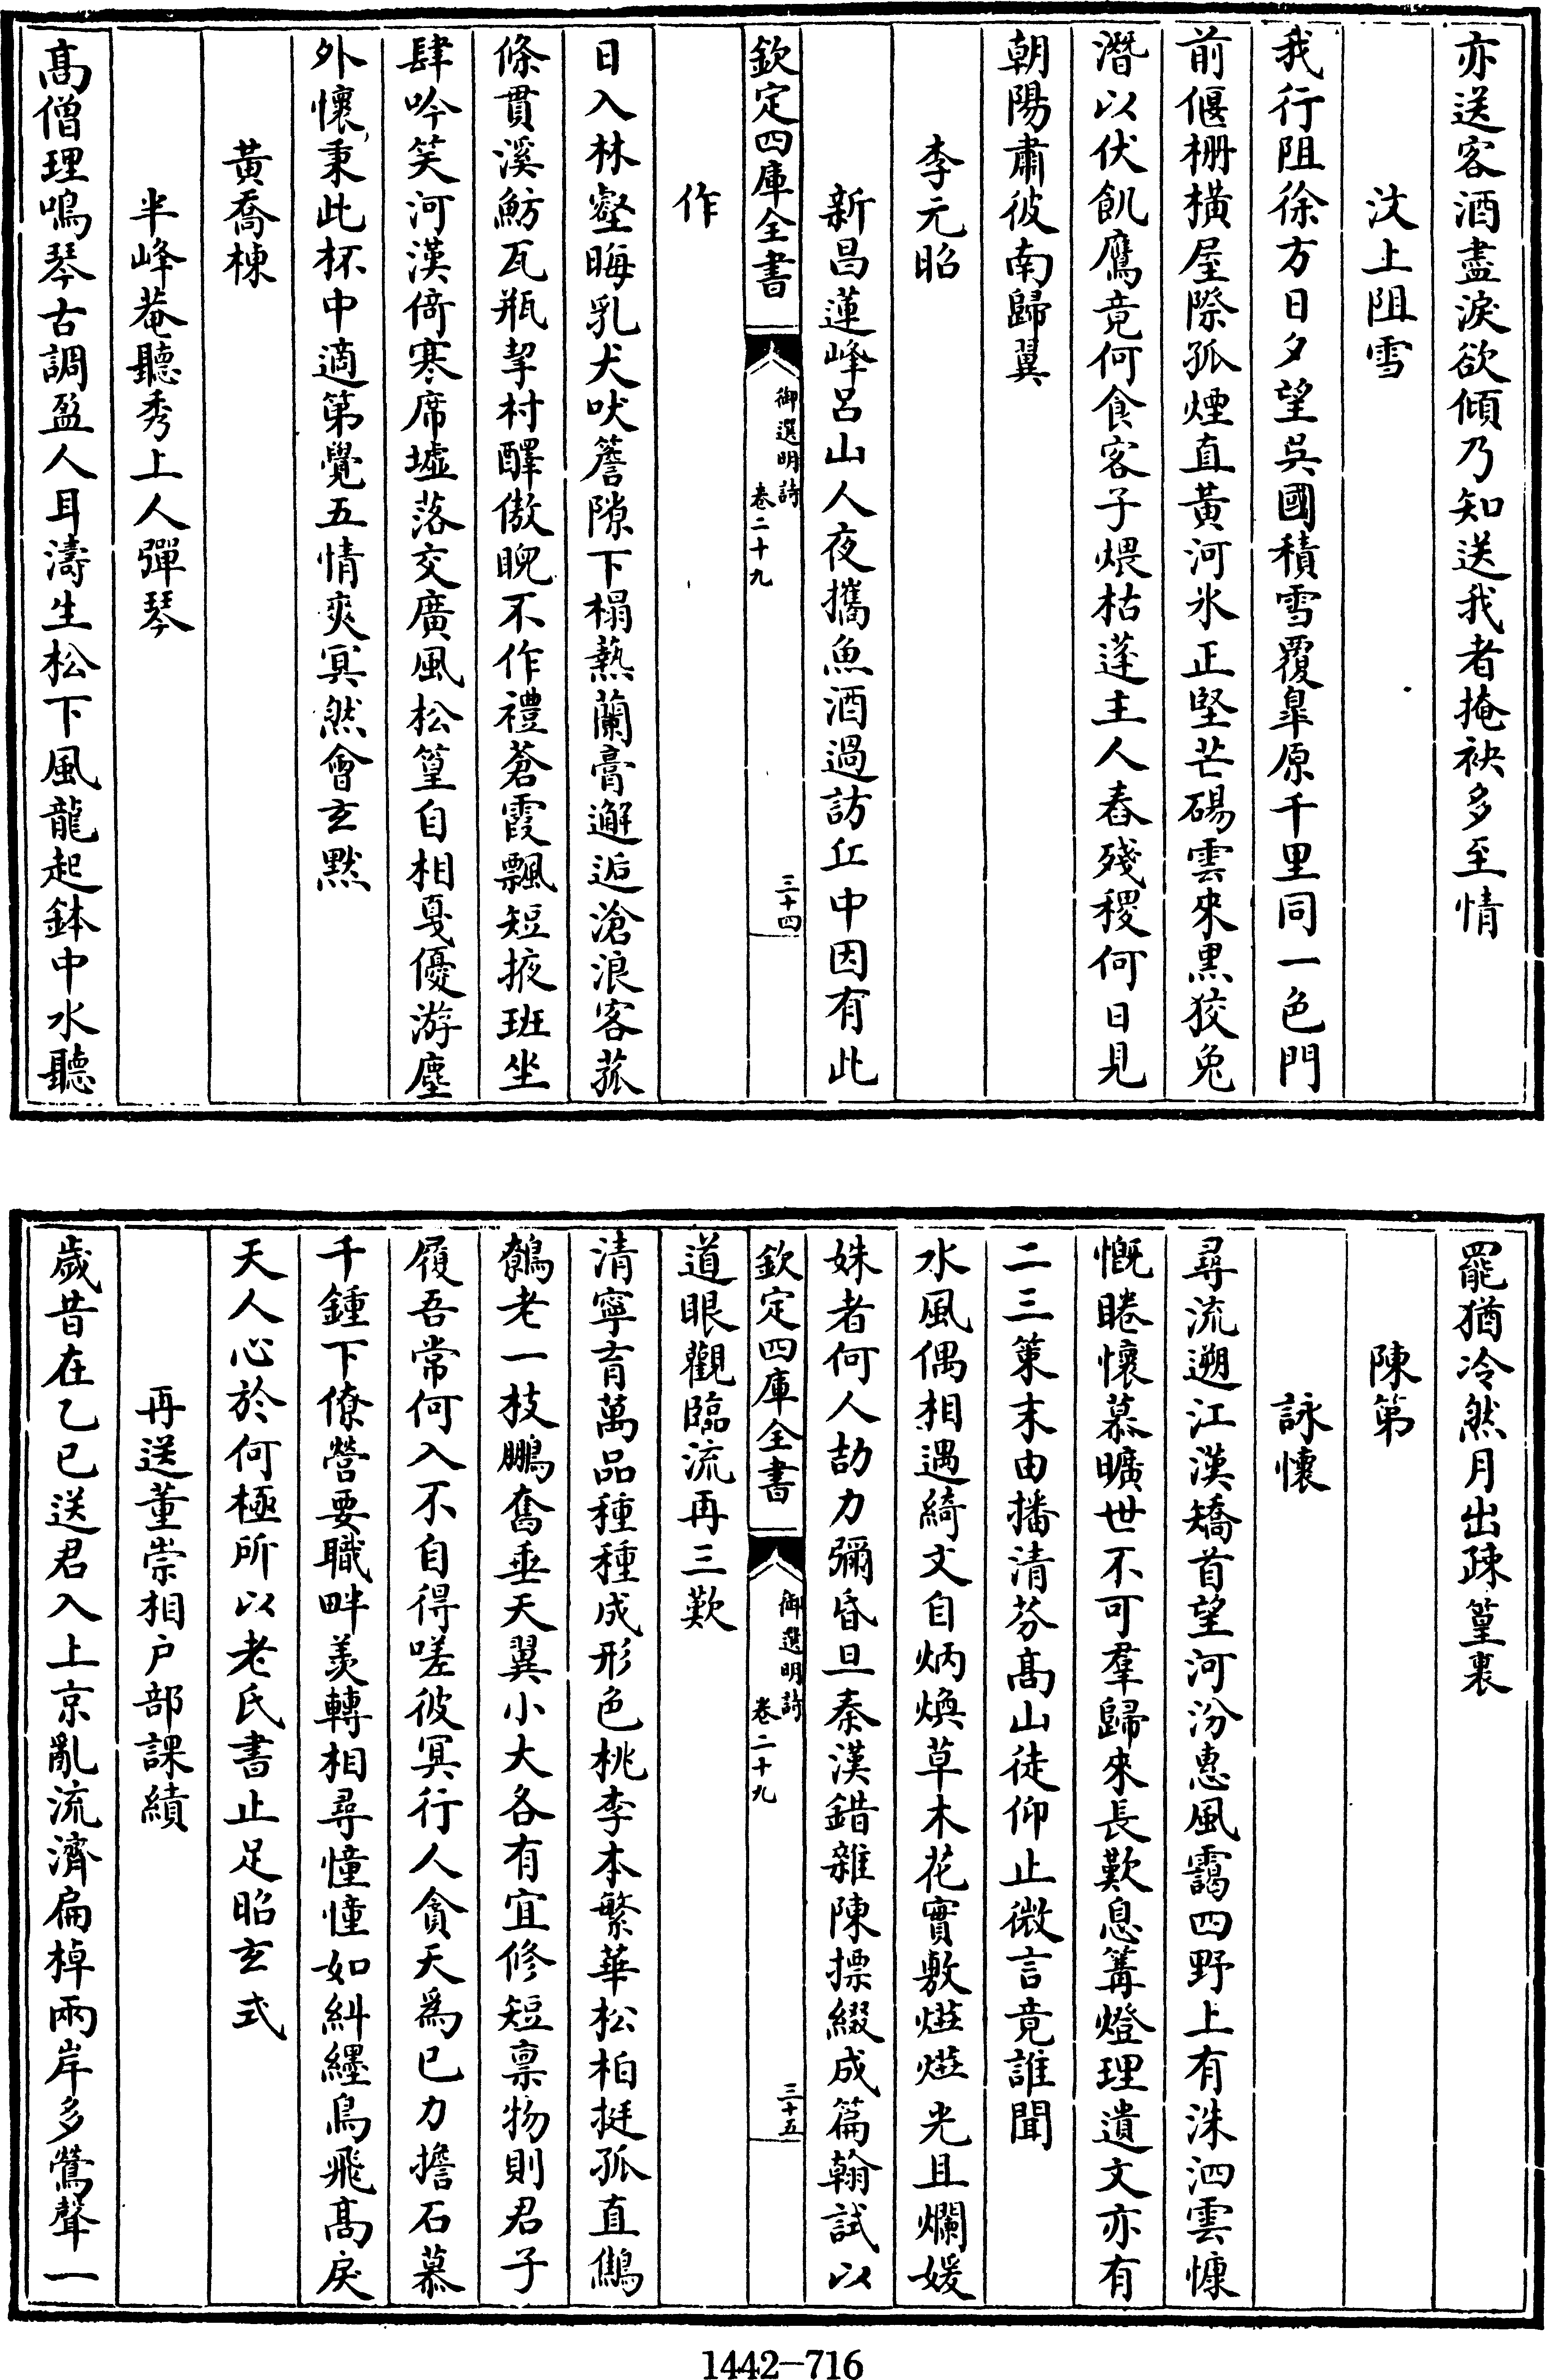 亦送客酒盡淚欲傾乃知送我者掩袂多至情
汶上阻雪
我行阻徐方日夕望吳國積雪覆臯原千里同一色門
前偃柵橫屋際孤煙直黃河氷正堅芒碭雲來黒狡兔
潛以伏飢鷹竟何食客子煨枯蓬主人舂殘稷何日見
朝陽肅彼南歸翼
李元昭
新昌蓮峰呂山人夜攜魚酒過訪丘中因有此
欽定四庫全書
御選明詩
卷二十九
三十四
作
日入林壑晦乳犬吠簷隙下榻爇蘭膏邂逅滄浪客菰
條貫溪魴瓦瓶挈村醳傲睨不作禮蒼霞飄短掖班坐
肆吟笑河漢倚寒席墟落交廣風松篁自相戛優游塵
外懷秉此杯中適第覺五情爽冥然會玄黙
黃喬棟
半峰菴聽秀上人彈琴
髙僧理鳴琴古調盈人耳濤生松下風龍起鉢中水聽
罷猶冷然月出疎篁裏
陳第
詠懷
尋流遡江漢矯首望河汾惠風靄四野上有洙泗雲慷
慨睠懷慕曠世不可羣歸來長歎息篝燈理遺文亦有
二三策末由播清芬髙山徒仰止微言竟誰聞
水風偶相遇綺文自炳煥草木花實敷燁燁光且爛媛
姝者何人劼力彌昏旦秦漢錯雜陳摽綴成篇翰試以
欽定四庫全書
御選明詩
卷二十九
三十五
道眼觀臨流再三歎
清寧育萬品種種成形色桃李本繁華松柏挺孤直鷦
鷯老一枝鵬奮垂天翼小大各有宜修短禀物則君子
履吾常何入不自得嗟彼冥行人貪天爲已力擔石慕
千鍾下僚營要職畔羨轉相尋憧憧如糾纆鳥飛髙戾
天人心於何極所以老氏書止足昭玄式
再送董崇相户部課績
歲昔在乙巳送君入上京亂流濟扁棹兩岸多鶯聲一
1442-716